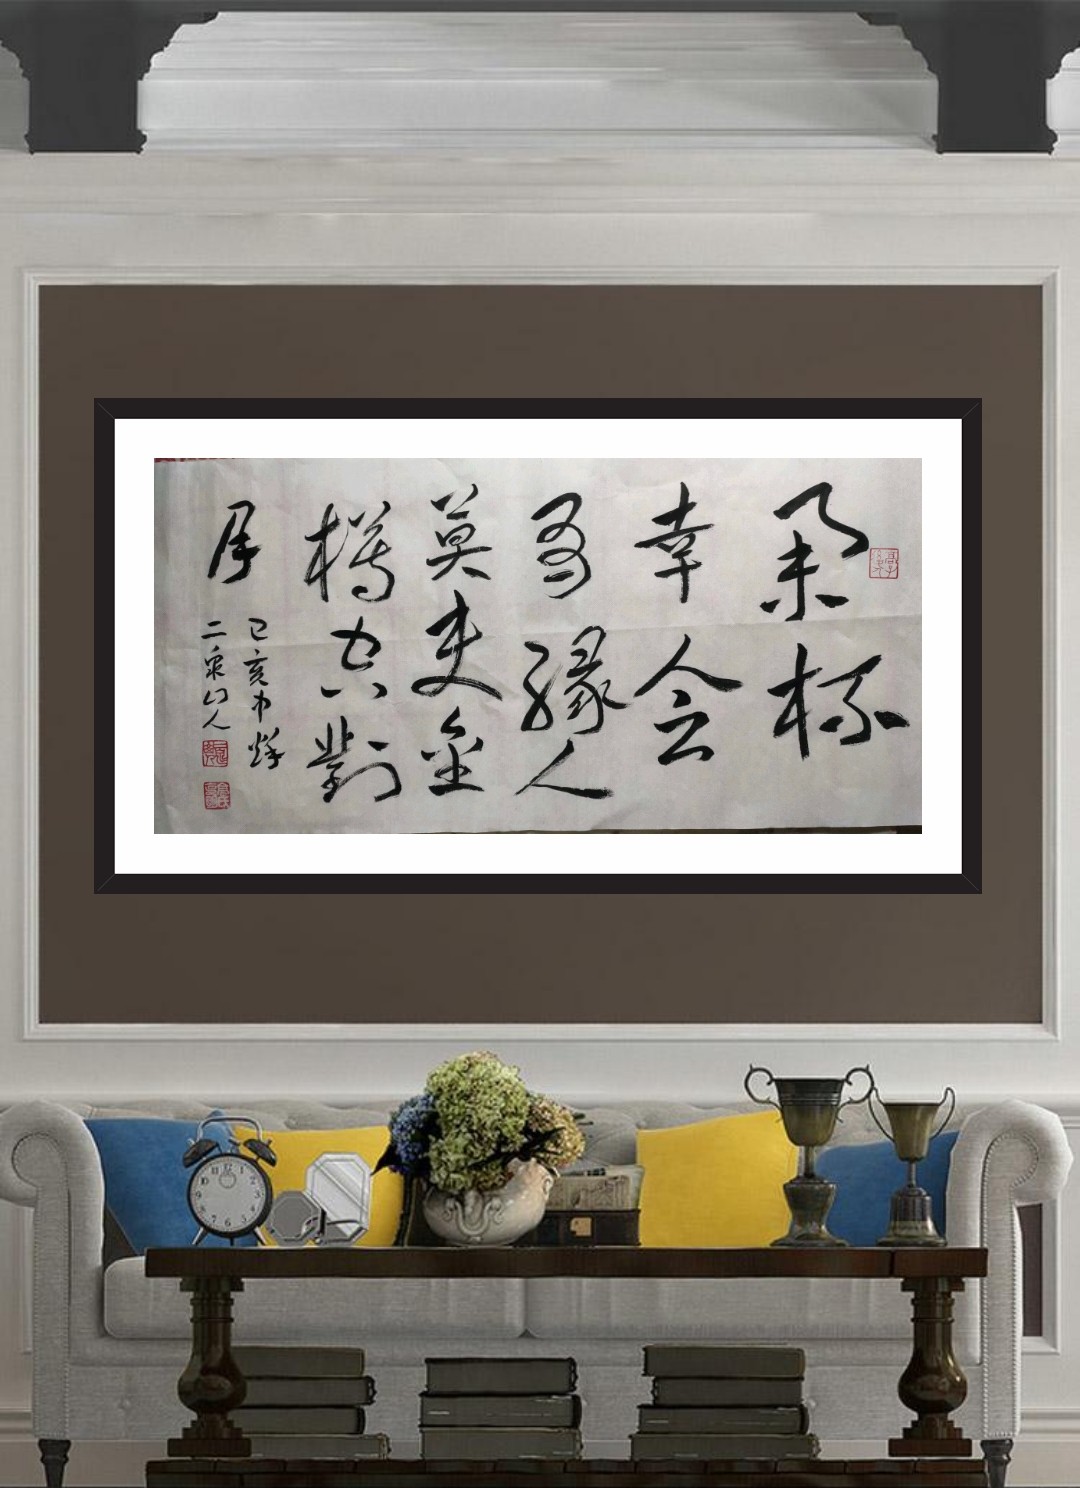 杯
幸会
多緣人
莫使金
樽空對
月
己亥中秋
二泉山人